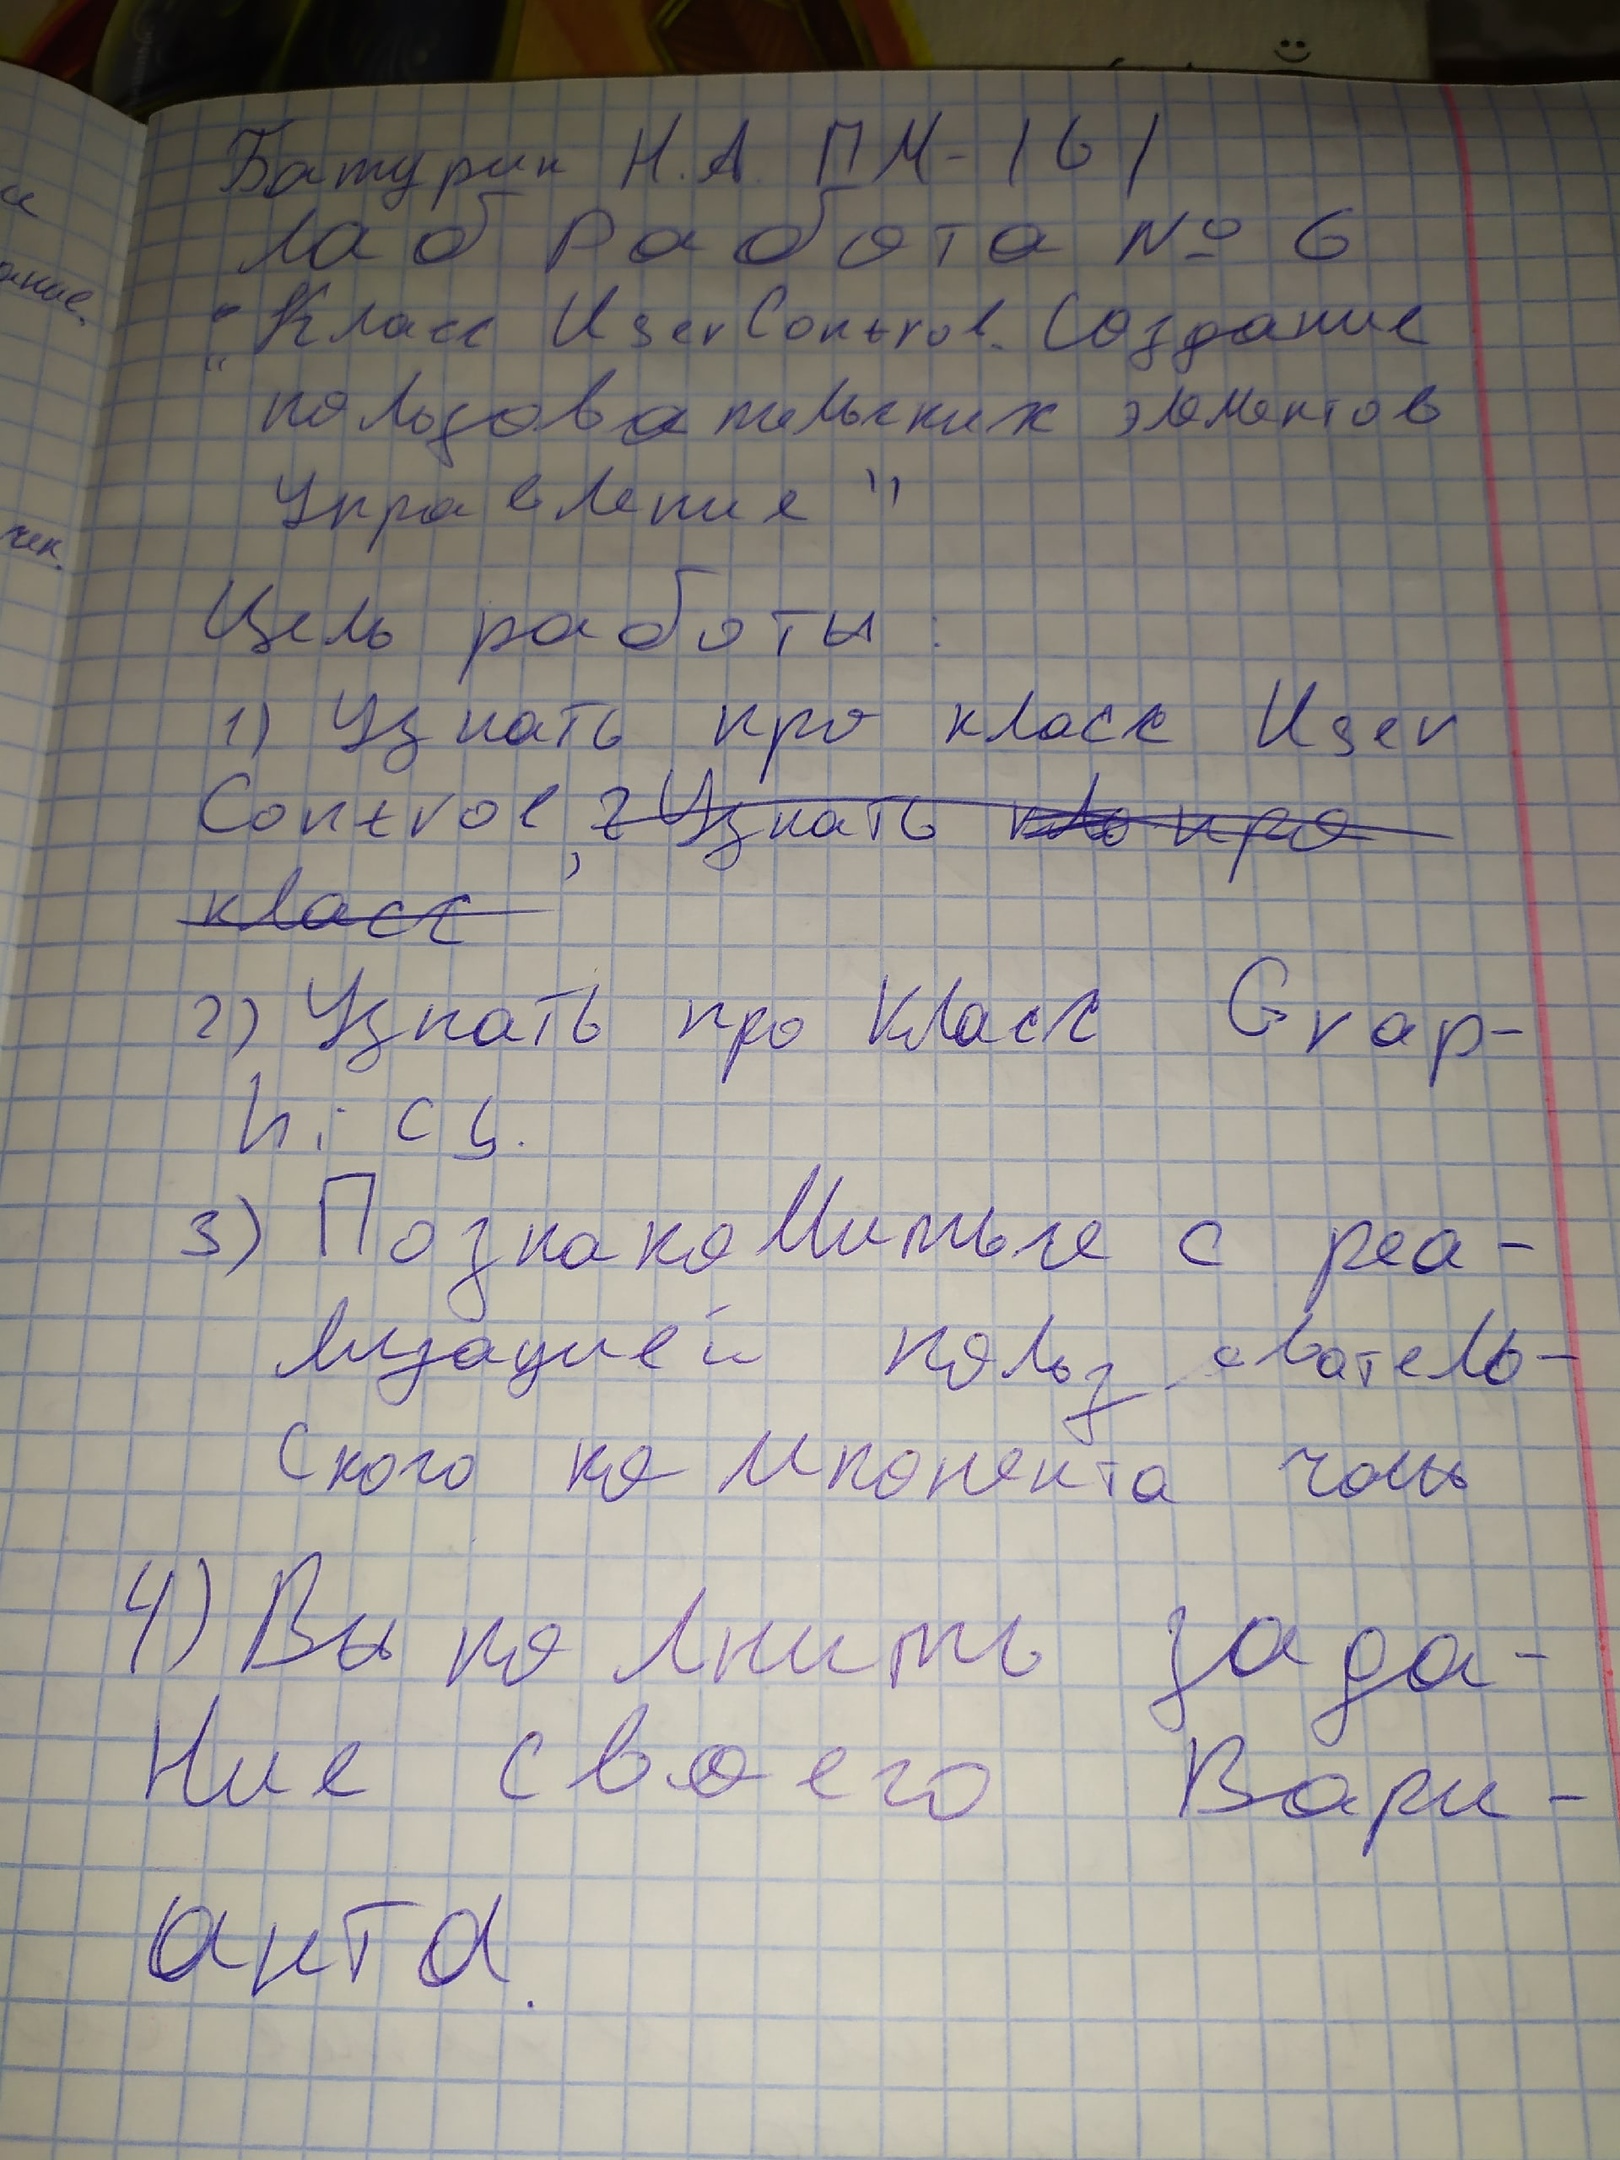 Батурин Н.А. ПМ-161
Лаб Работа № 6
"Класс UserControl. Создание
пользовательских элементов
управление"
Цель работы:
1) Узнать про класс User
Control, 2 Узнать про
класс
2) Узнать про Класс Grap-
hics.
3) Познакомиться с реа-
лизацией пользователь-
ского компонента часы
4) Выполнить зада-
ние своего Вари-
анта.